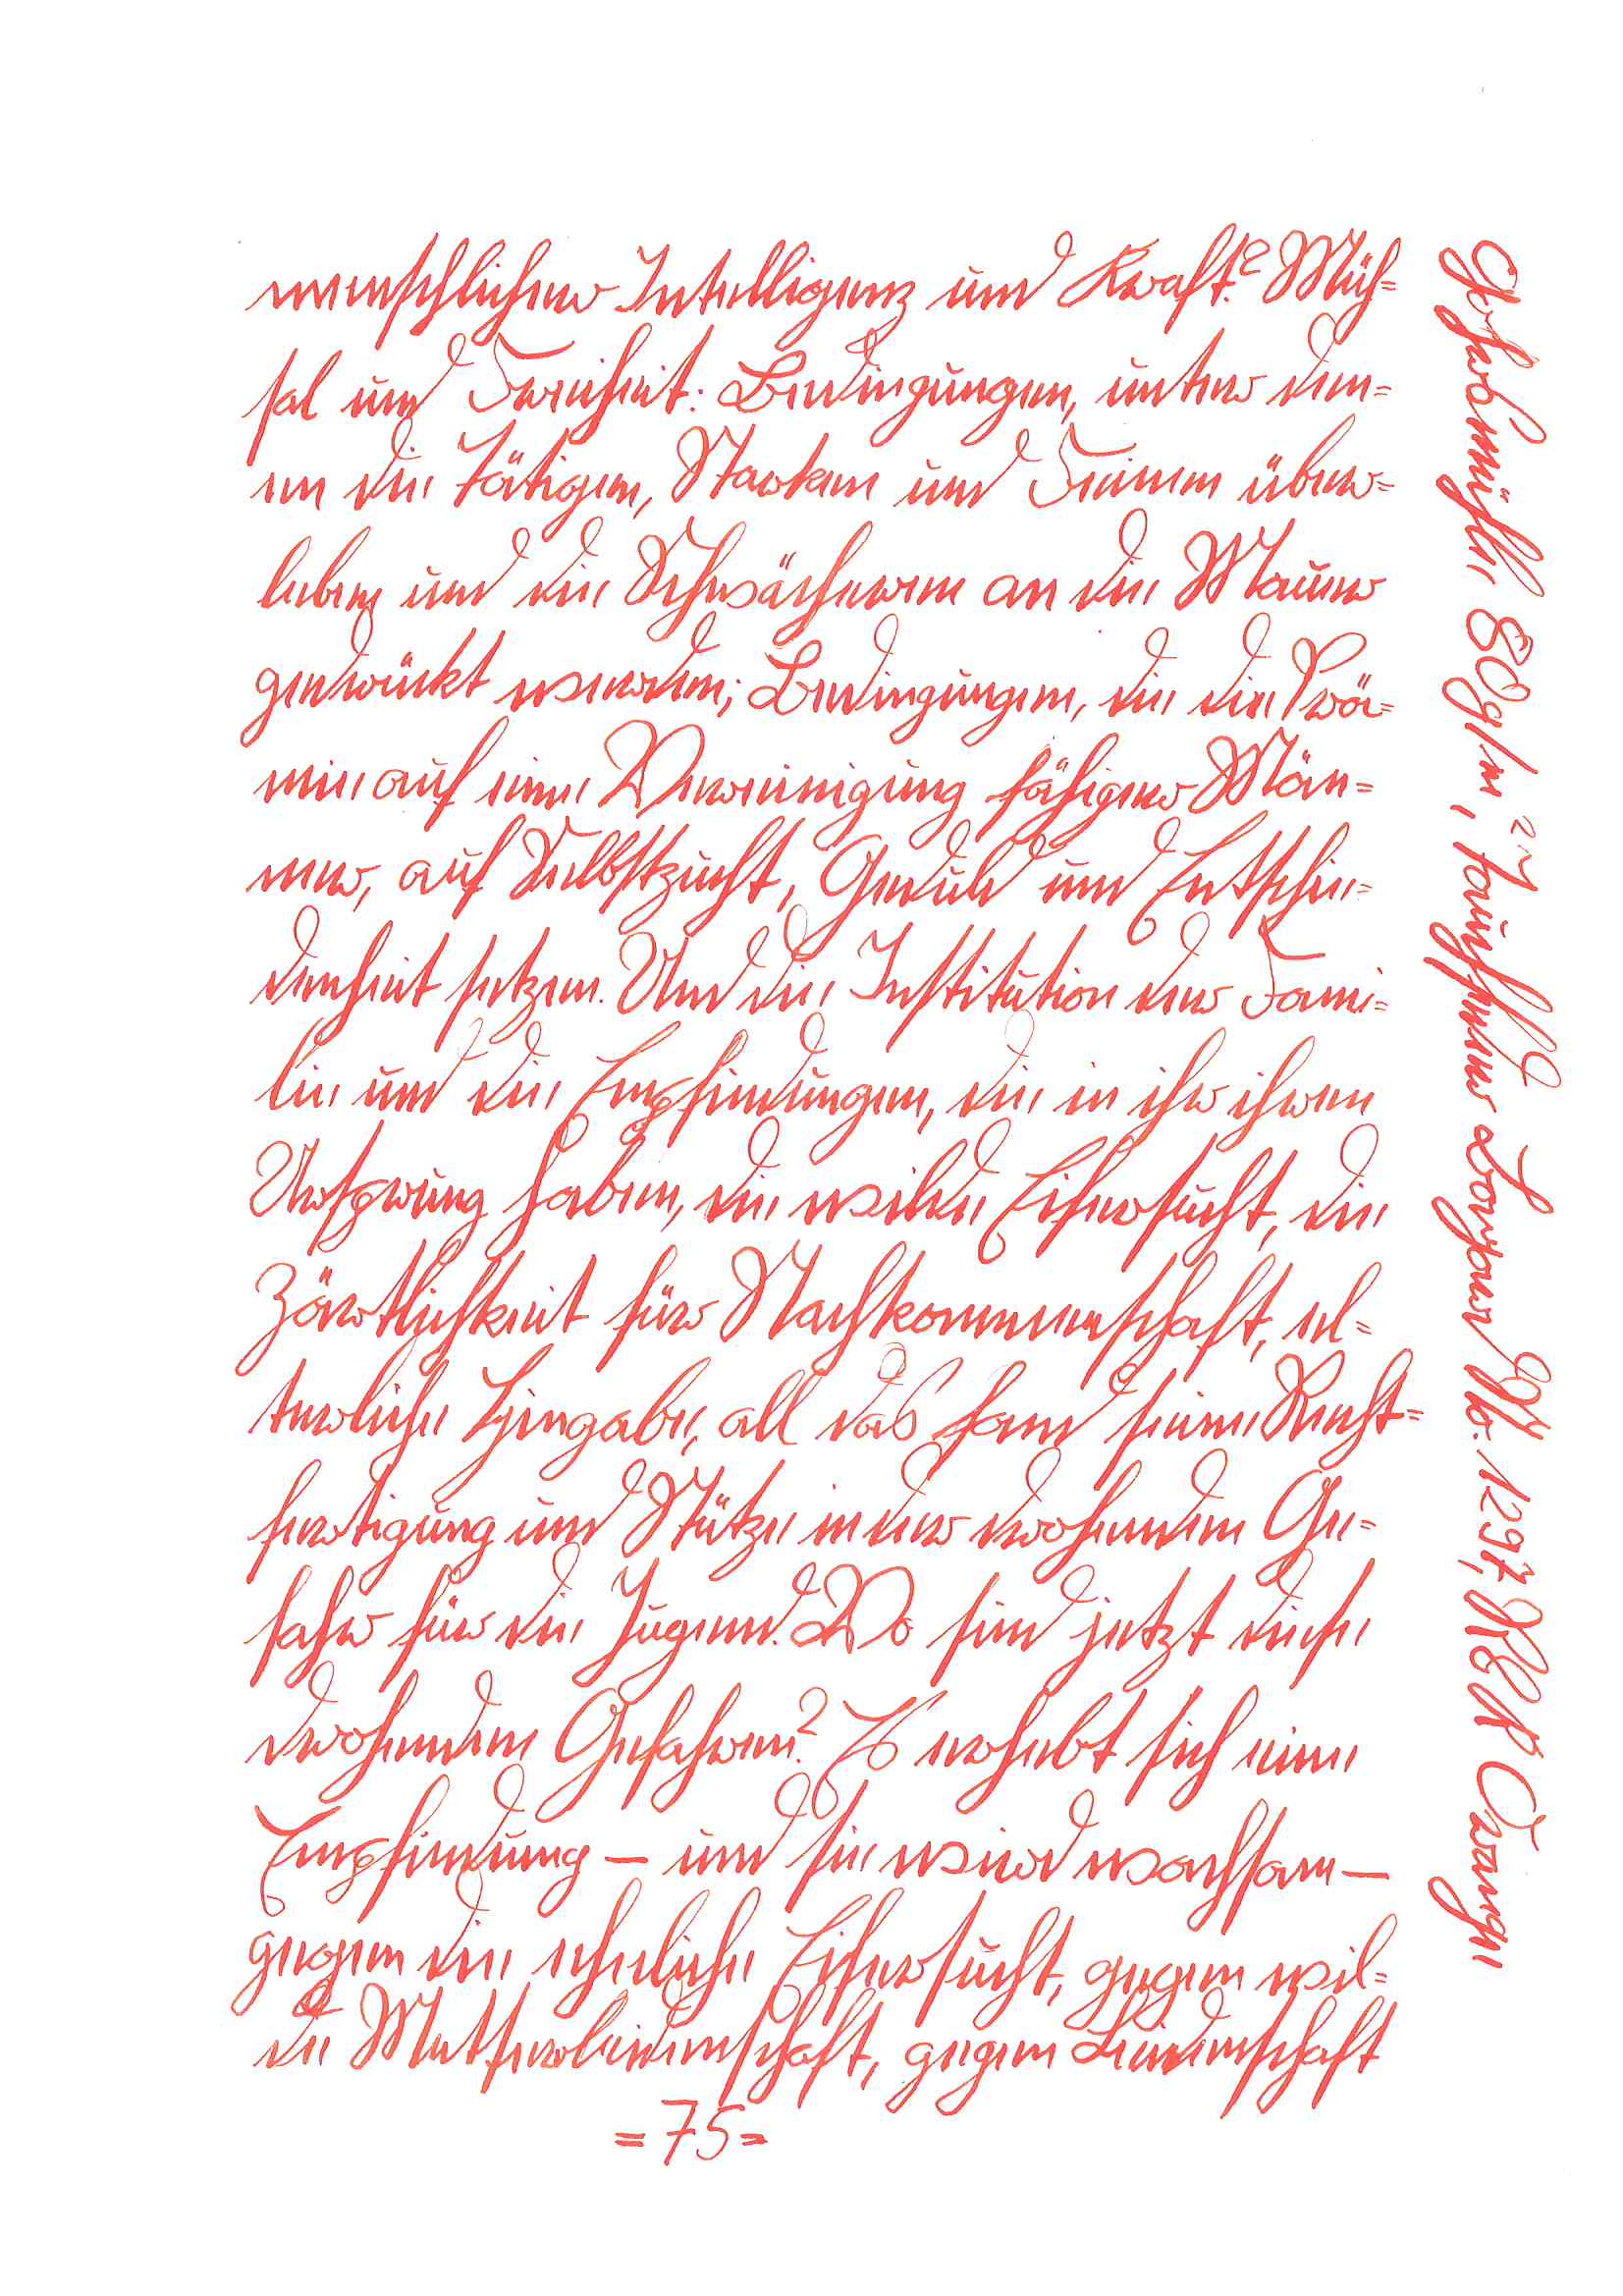 menschlicher Intelligenz und Kraft? Müh=
sal und Freiheit: Bedingungen, unter den=
en die Tätigen, Starken und Feinen über=
leben und die Schwächeren an die Mauer
gedrückt werden; Bedingungen, die die Prä=
mie auf eine Vereinigung fähiger Män=
ner, auf Selbstzucht, Geduld und Entschie=
denheit setzen. Und die Institution der Fami=
lie und die Empfindungen, die in ihr ihren
Ursprung haben, die wilde Eifersucht, die
Zärtlichkeit für Nachkommenschaft, el=
terliche Hingabe, all das fand seine Recht=
fertigung und Stütze in der drohenden Ge=
fahr für die Jugend. Wo sind jetzt diese
drohenden Gefahren? Es erhebt sich eine
Empfindung – und sie wird wachsam –
gegen die eheliche Eifersucht, gegen wil=
de Mutterleidenschaft, gegen Leidenschaft
=75=
80g/m², No. 1297, Orange